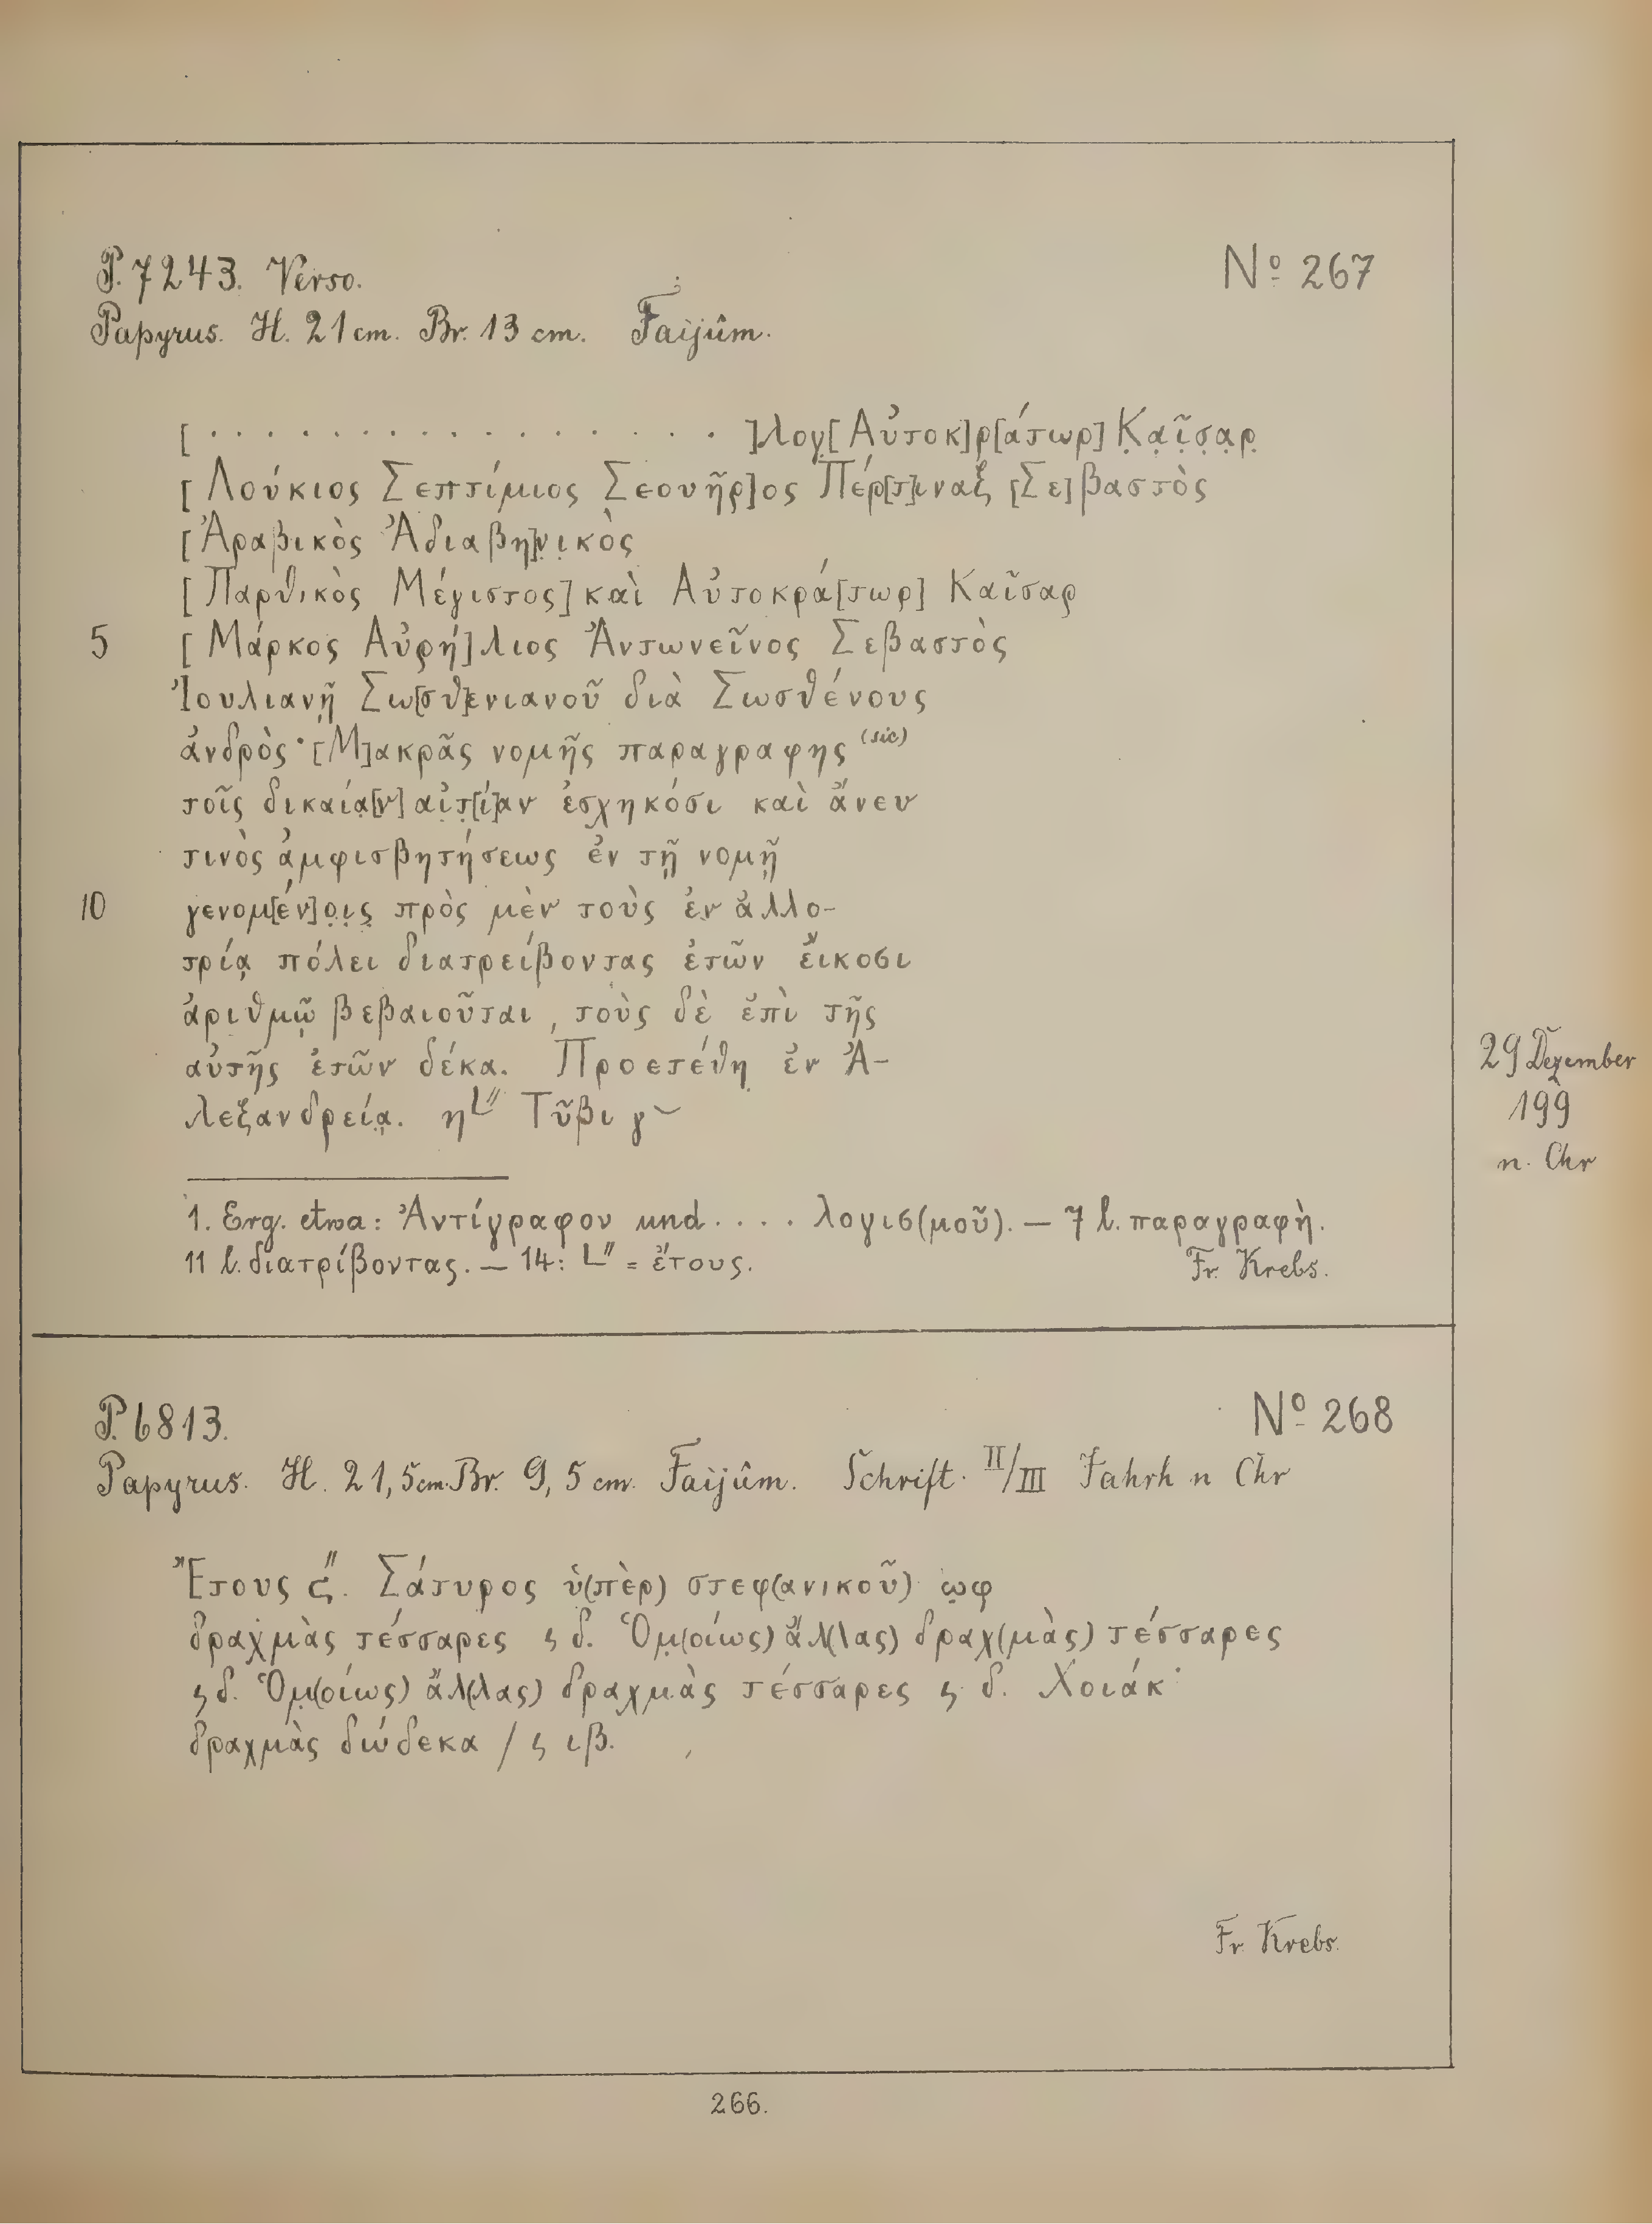 P. 7243. Verso.
Nº 267
Papyrus. H. 21 cm. Br. 13 cm. Faijûm.
[ . . . . . . . . . . . . . . . . . ]λογ̣[Αὐτοκ]ρ[άτωρ] Κ̣α̣ῖ̣σ̣α̣ρ̣
[Λούκιος Σεπτίμιος Σεουῆρ]ος Πέρ[τ]ιναξ [Σε]βαστὸς
[Ἀραβικὸς Ἀδιαβη]ν̣ι̣κὸς
[Παρθικὸς Μέγιστος] καὶ Αὐτοκρά[τωρ] Καῖσαρ
5 [Μάρκος Αὐρή]λιος Ἀντωνεῖνος Σεβαστὸς
Ἰουλιανῇ Σω[σθ]ενιανοῦ διὰ Σωσθένους
ἀνδρὸς· [Μ]ακρᾶς νομῆς παραγραφης (sic)
τοῖς δικαία̣[ν] αἰτ̣[ί]αν ἐσχηκόσι καὶ ἄνευ
τινὸς ἀμφισβητήσεως ἐν τῇ νομῇ
10 γενομ[έν]ο̣ι̣ς̣ πρὸς μὲν τοὺς ἐν ἀλλο-
τρίᾳ πόλει διατρείβοντας ἐτῶν εἴκοσι
ἀριθμῷ βεβαιοῦται, τοὺς δὲ ἐπὶ τῆς
αὐτῆς ἐτῶν δέκα. Προετέθη ἐν Ἀ-
λεξανδρείᾳ. η L'' Τῦβι γ
29 Dezember
199
n. Chr
1. Erg. etwa: Ἀντίγραφον und . . . . λογισ(μοῦ). — 7 l. παραγραφὴ.
11 l. διατρίβοντας. — 14: L'' = ἔτους.
Fr. Krebs.
P. 6813.
Nº 268
Papyrus. H. 21,5 cm. Br. 9,5 cm. Faijûm. Schrift. II/III Jahrh n Chr
Ἔτους ϛ''. Σάτυρος ὑ(πὲρ) στεφ(ανικοῦ) ω̣φ
δραχμὰς τέσσαρες ϟ δ. Ὁμ(οίως) ἄλ(λας) δραχ(μὰς) τέσσαρες
ϟ δ. Ὁμ(οίως) ἄλ(λας) δραχμὰς τέσσαρες ϟ δ. Χοιάκ·
δραχμὰς δώδεκα / ϟ ιβ.
Fr. Krebs.
266.